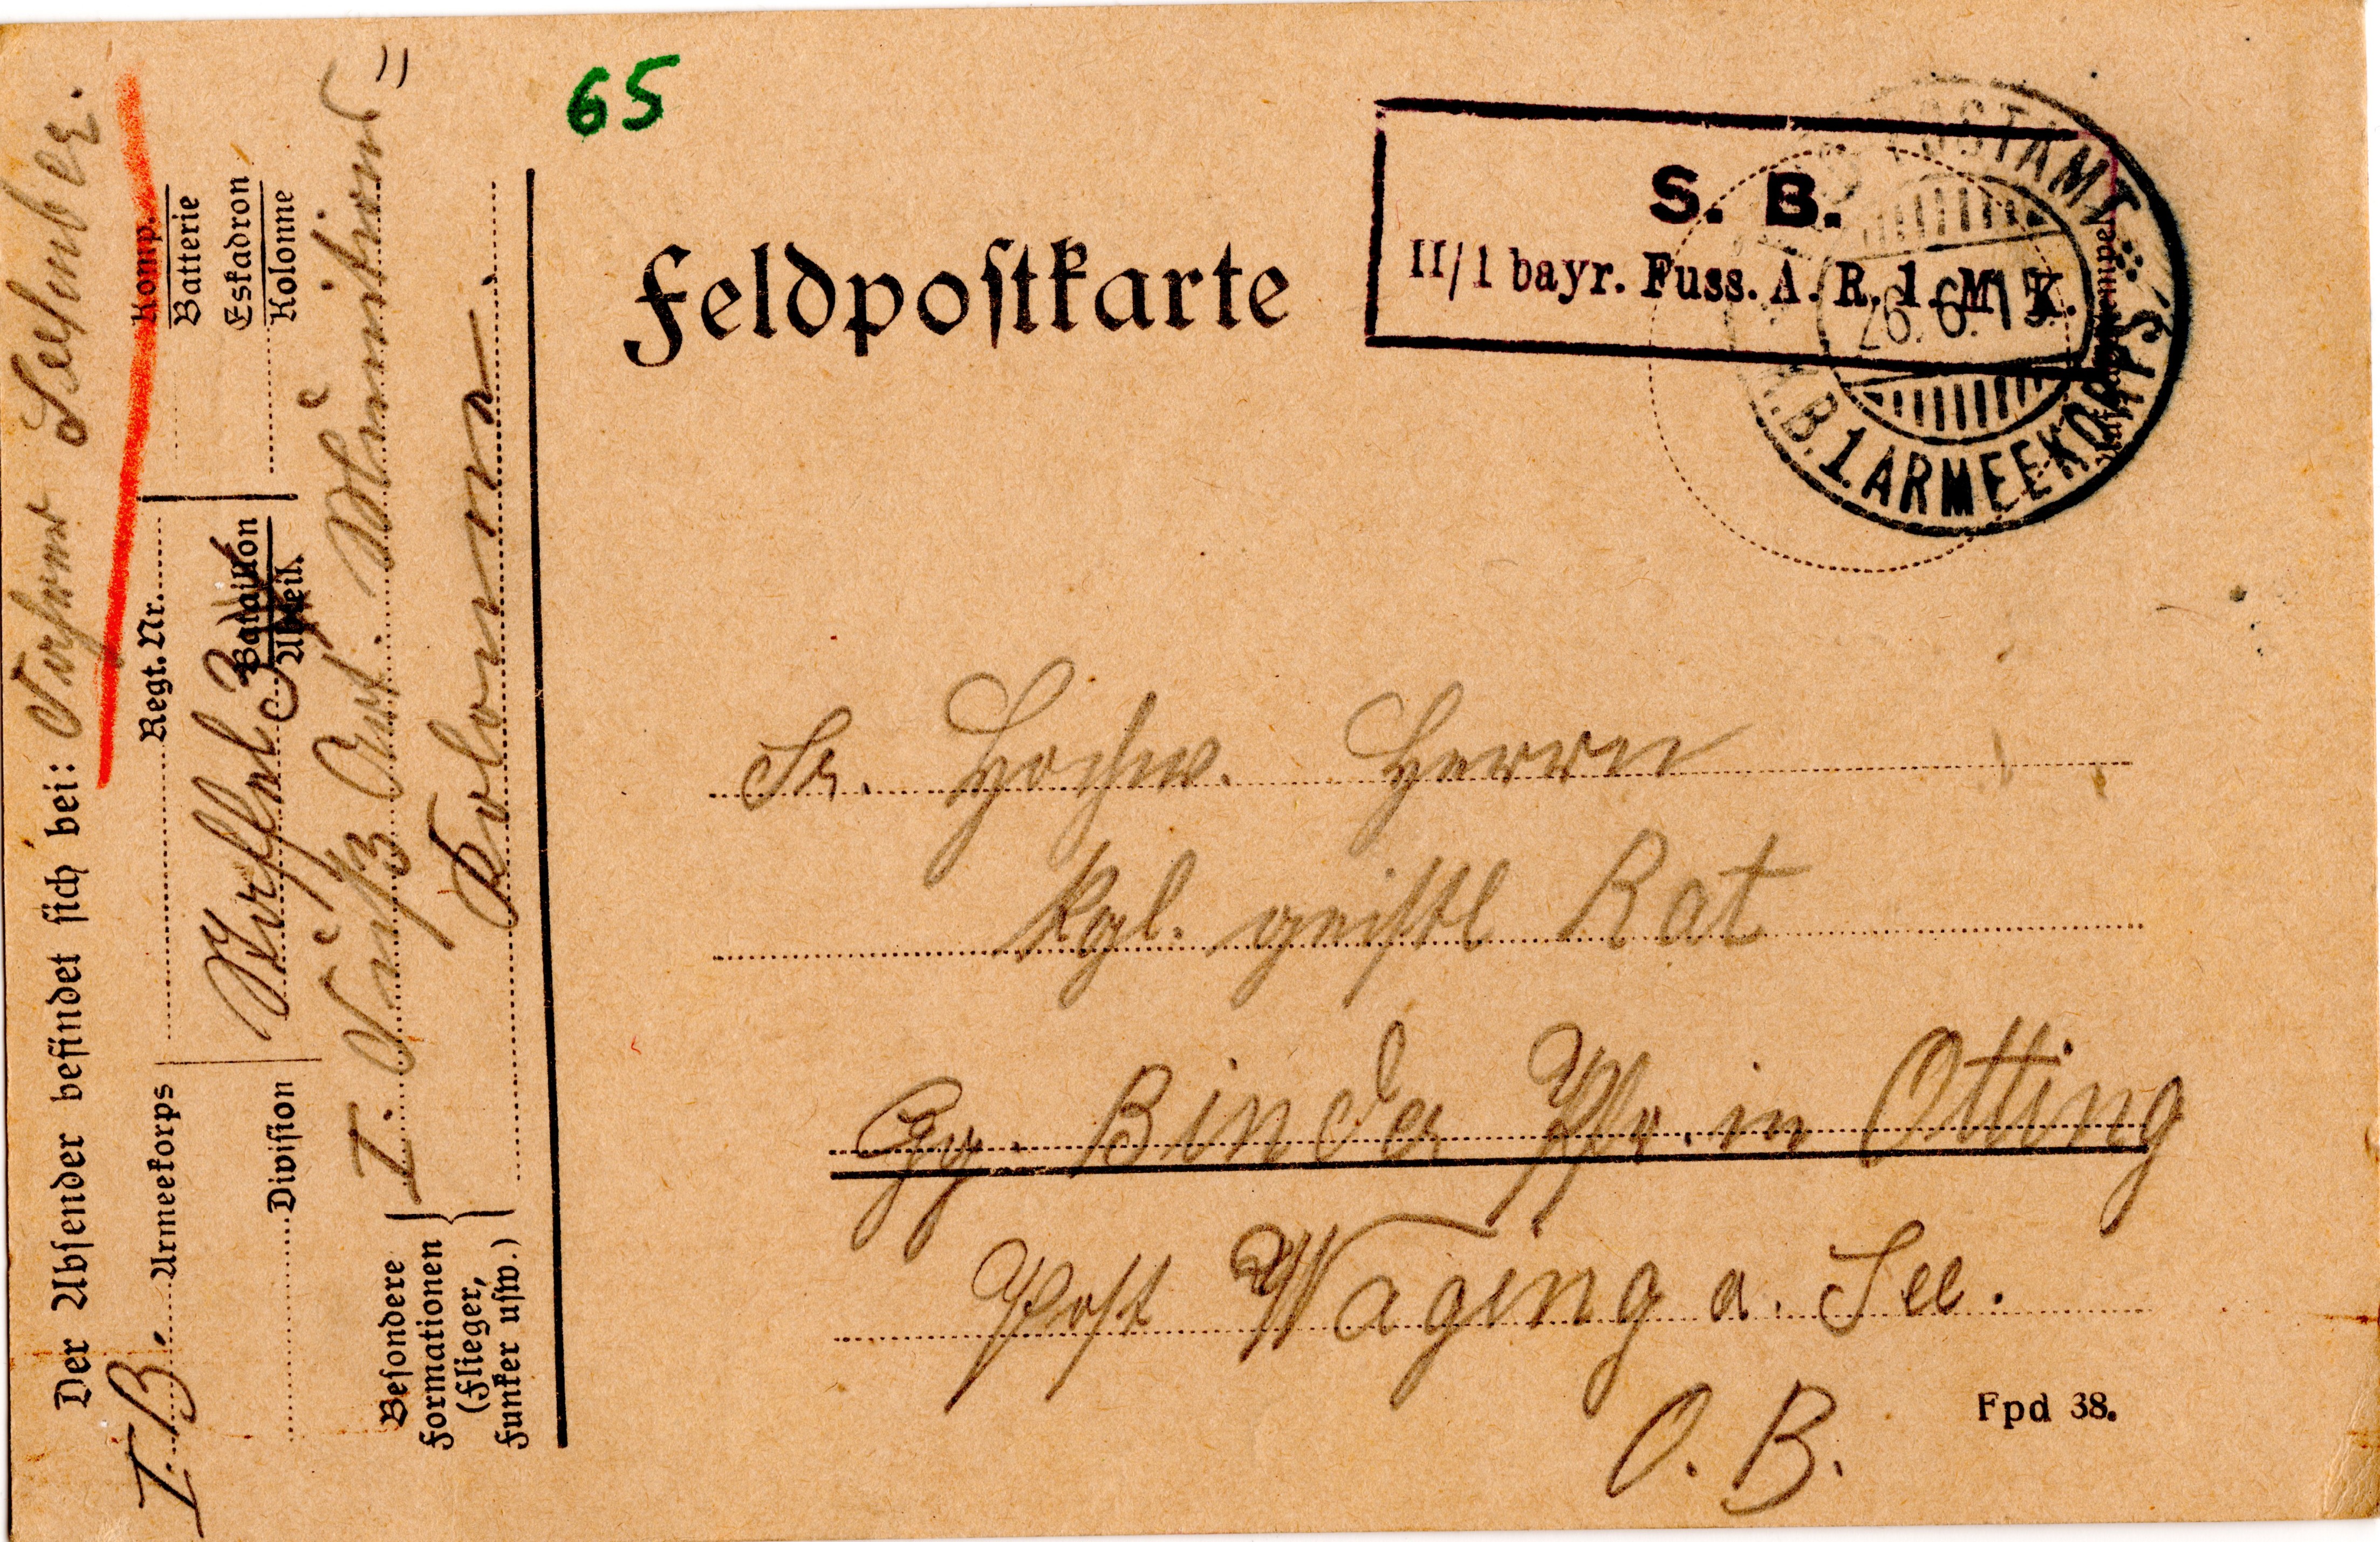 65
Feldpostkarte
S. B.
II/1 bayr. Fuss. A. R. 1. M. K.
POSTAMT
26. 6. 15
K.B. 1. ARMEEKORPS
Sr. Hochw. Herrn
kgl. geistl Rat
Gg. Binder Pfr. in Otting
Post Waging a. See.
O. B.
Fpd 38.
Der Absender befindet sich bei:
I. B. Armeekorps
Regt. Nr.
Komp.
Batterie
Division
Staffel 3
Bataillon
Abteil.
Eskadron
Kolonne
Besondere
Formationen
(Flieger,
Funker usw.)
I. Fußart. Munitions=
Kolonne